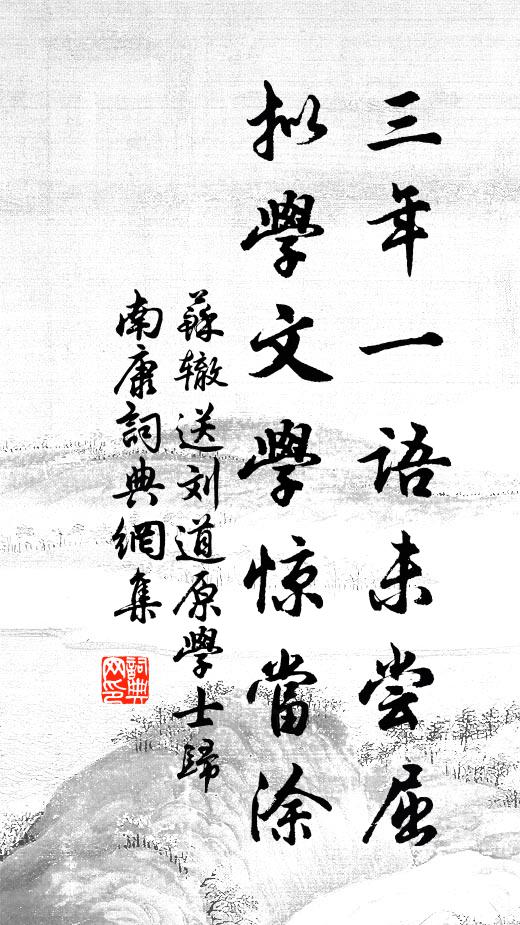 三年一語未尝屈
拟學文學惊當涂
蘇辙送刘道原學士歸
南康詞典網集
詞典
网印